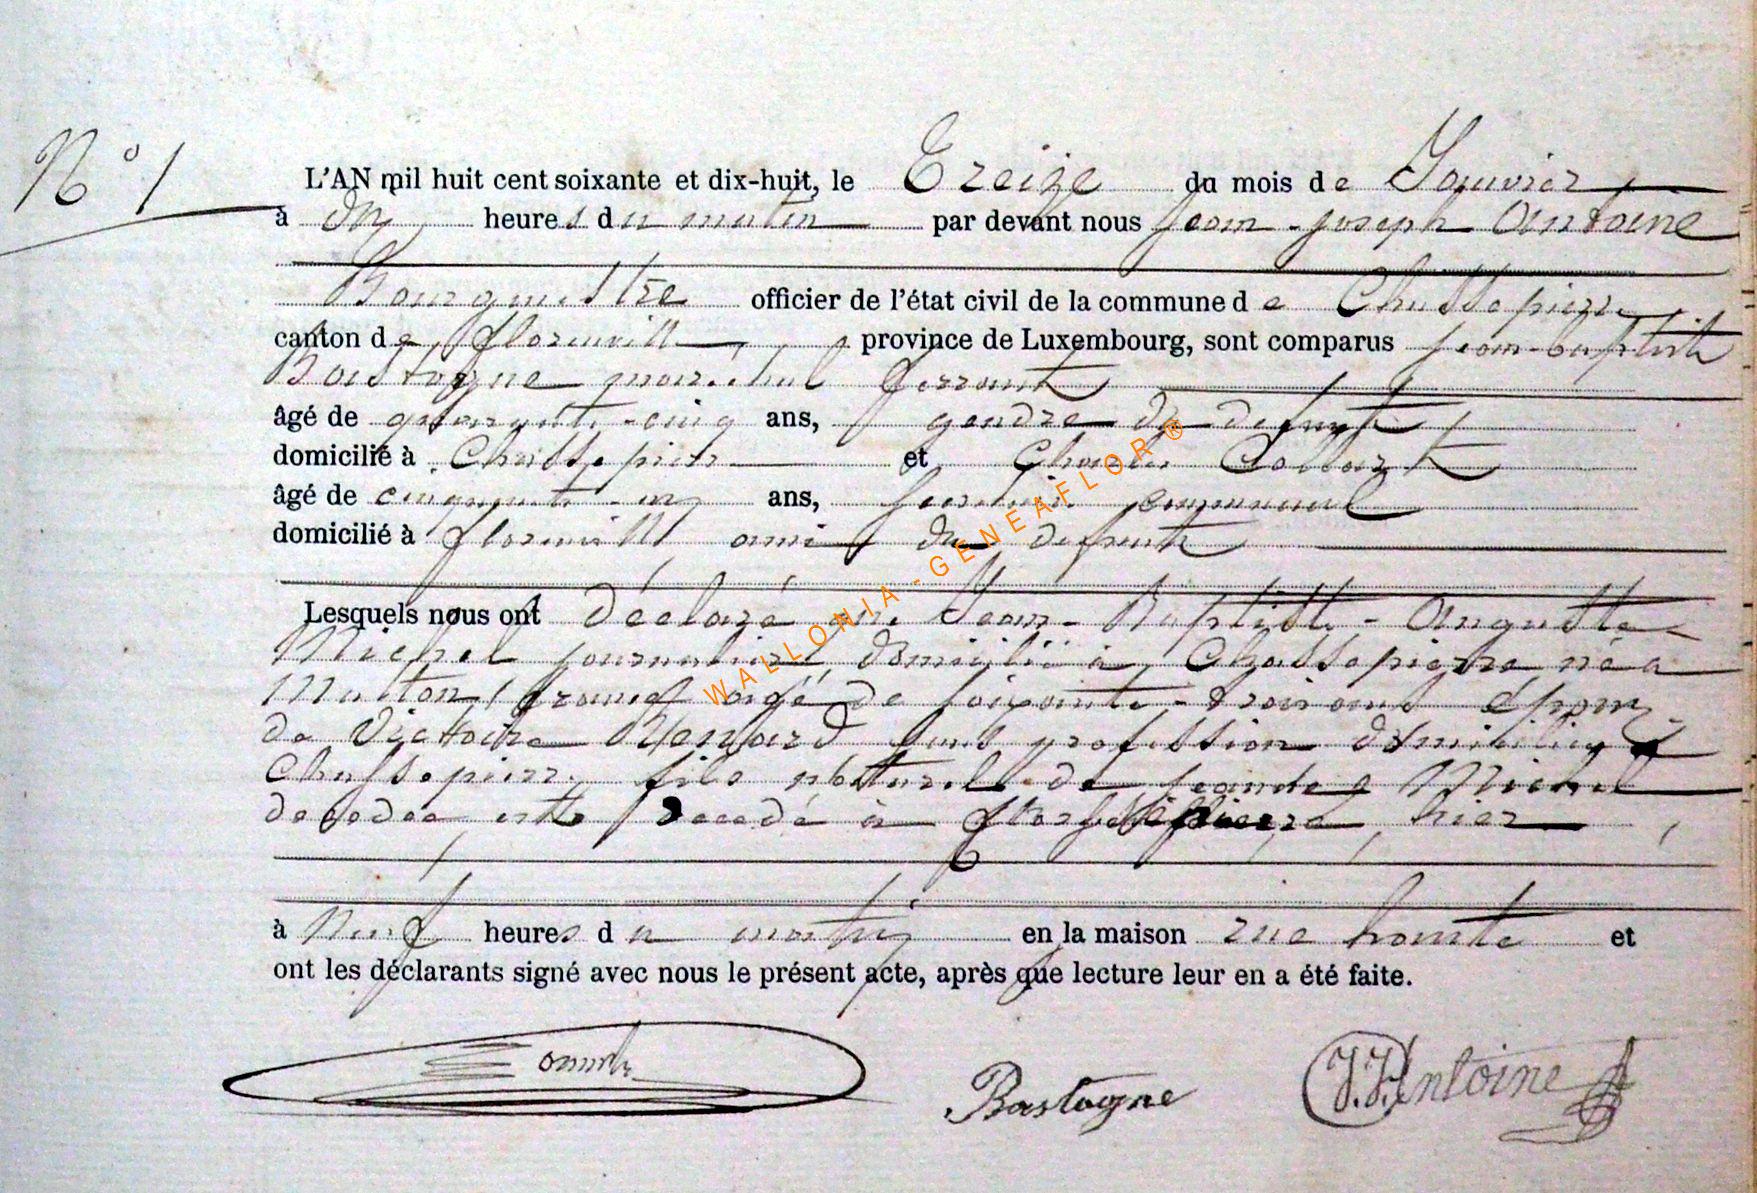 N° 1
L'AN mil huit cent soixante et dix-huit, le Treize du mois de Janvier
à dix heures du matin par devant nous Jean-Joseph Antoine
Bourgmestre officier de l'état civil de la commune de Chassepierre
canton de Florenville province de Luxembourg, sont comparus Jean-baptiste
Bastogne maréchal ferrant
âgé de quarante-cinq ans, gendre du defunt
domicilié à Chassepierre et Charles Collart
âgé de cinquante- ans, communal
domicilié à florenville ami du defunt
Lesquels nous ont déclaré que Jean-Baptiste-Auguste
Michel journalier, domicilié à Chassepierre né a
Matton, france âgé de soixante-trois ans époux
de Victoire Renard sans profession domiciliée a
Chassepierre, fils naturel de jeanne Michel
décédée, est décédé à Chassepierre, hier
à Neuf heures du matin en la maison rue haute et
ont les déclarants signé avec nous le présent acte, après que lecture leur en a été faite.
Bastogne
J.J. Antoine
WALLONIA - GENEAFLOR ®